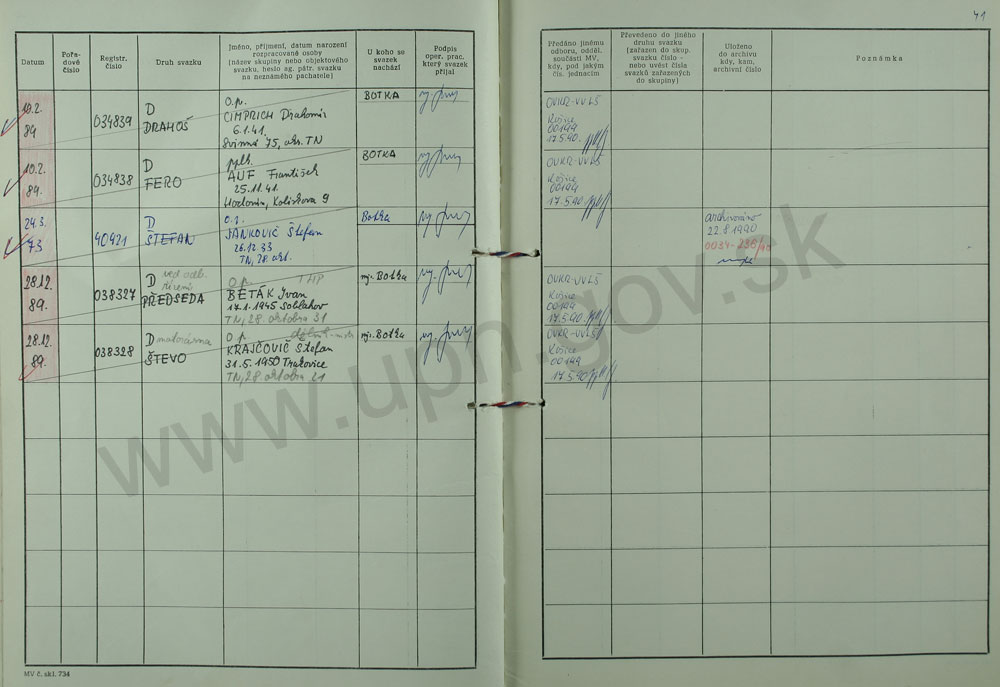 41
Datum
Pořa-
dové
číslo
Registr.
číslo
Druh svazku
Jméno, příjmení, datum narození
rozpracované osoby
(název skupiny nebo objektového
svazku, heslo sg. pátr. svazku
na neznámého pachatele)
U koho se
svazek
nachází
Podpis
oper. prac.
který svazek
přijal
Předáno jinému
odboru, odděl.
součásti MV,
kdy, pod jakým
čís. jednacím
Převedeno do jiného
druhu svazku
(zařazen do skup.
svazku číslo -
nebo uvést čísla
svazků zařazených
do skupiny)
Uloženo
do archivu
kdy, kam,
archivní číslo
Poznámka
10.2.
89
034839
D
DRAHOŠ
o.p.
CIMPRICH Drahomír
6.1.41.
Svinná 75, okr. TN
BOTKA
OVKR-VVLŠ
Košice
00199
17.5.90.
10.2.
89.
034838
D
FERO
AUF František
25.11.41.
9
BOTKA
OVKR-VVLŠ
Košice
00199
17.5.90.
24.3.
73
40421
D
ŠTEFAN
JANKOVIČ Štefan
26.12.33
TN, 28. okt.
Botka
archivováno
22.8.1990
28.12.
89.
038327
D ved. odb.
řízení
PŘEDSEDA
o.p. THP
BĚTÁK Ivan
17.1.1945 Soblahov
TN, 28. októbra 31
mjr. Botka
OVKR-VVLŠ
Košice
00199
17.5.90
28.12.
89.
038328
D
ŠTEVO
o.p.
KRAJČOVIČ Štefan
31.5.1950 Trakovice
TN, 28. októbra 21
mjr. Botka
OVKR-VVLŠ
Košice
00199
17.5.90
www.upn.gov.sk
MV č. skl. 734